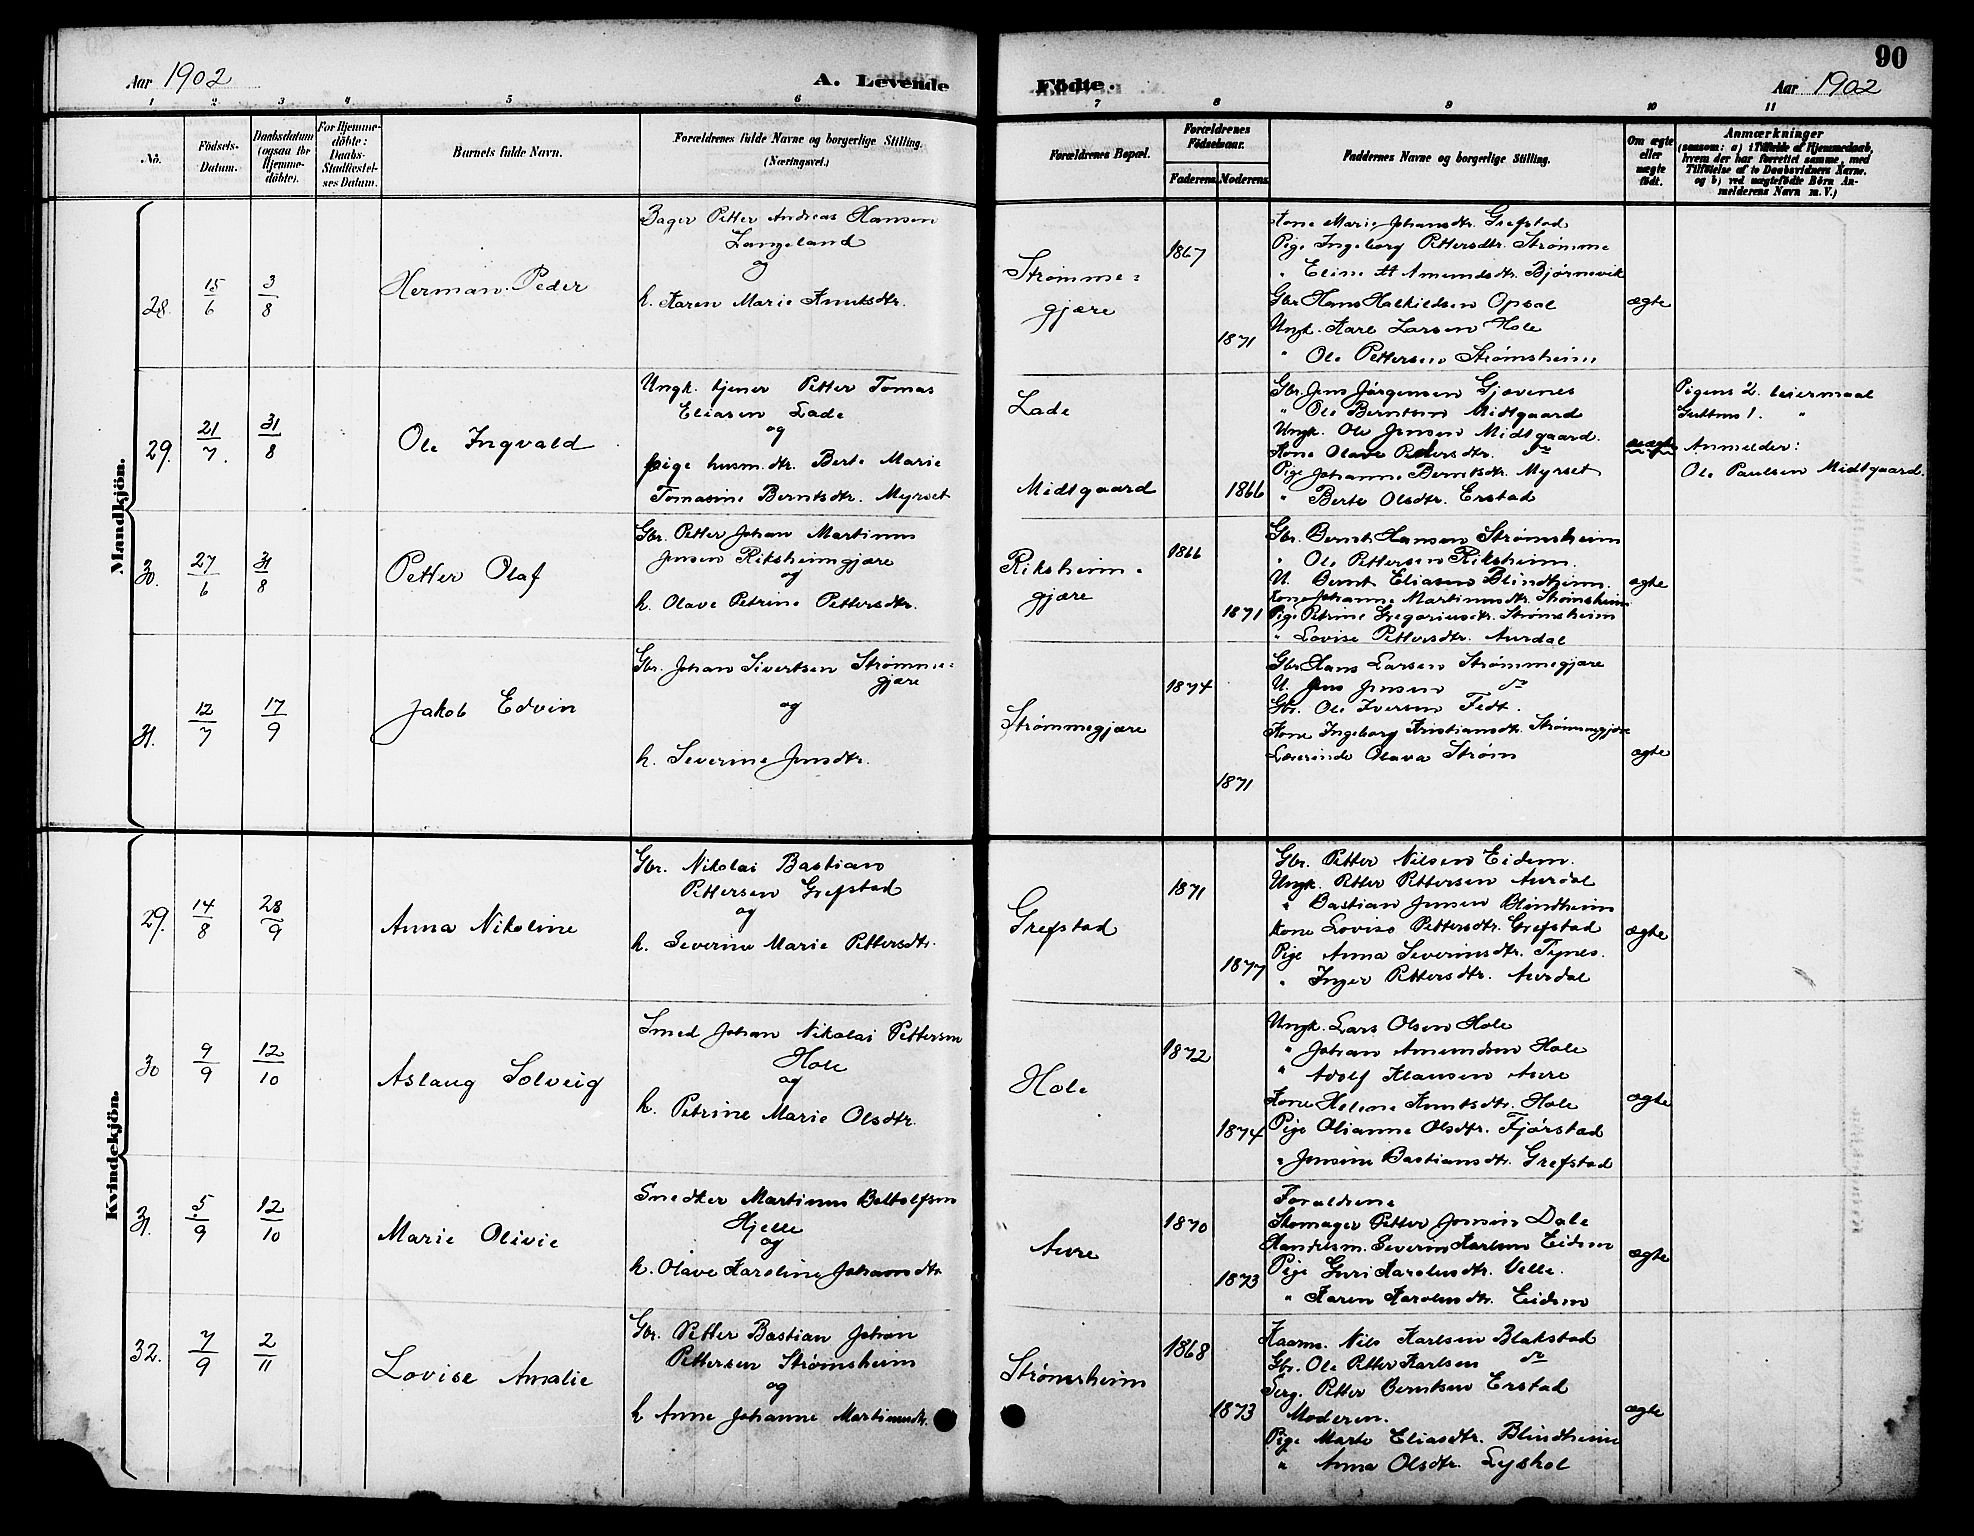 90
Aar 1902
A. Levende
Fødte.
Aar 1902
1 2 3 4 5 6 7 8 9 10 11
No.
Födsels-Datum.
Daabsdatum (ogsaa for Hjemme-döbte).
For Hjemme-döbte: Daabs-Stadfæstel-ses Datum.
Barnets fulde Navn.
Forældrenes fulde Navne og borgerlige Stilling.
(Næringsvei.)
Forældrenes Bopæl.
Forældrenes Födselsaar.
Faderens. Moderens.
Faddernes Navne og borgerlige Stilling.
Om ægte eller uægte födt.
Anmærkninger
(saasom: a) i Tilfælde af Hjemmedaab,
hvem der har forrettet samme, med
Tilföielse af to Daabsvidners Navne.
og b) ved uægtefödte Börn An-
melderens Navn m. V.)
Mandkjön.
28.
15/6
3/8
Herman Peder
Bager Petter Andreas Hansen
Langeland
og
h. Karen Marie Knutsdtr.
Strømme-
gjære
1867
1871
Kone Marie Johansdtr. Grefstad
Pige Ingeborg Pettersdtr. Strømme
" Eline M Amundsdtr. Bjørnevik
Gbr. Hans Halkildsen Opsal
Ungk. Karl Larsen Hole
" Ole Pettersen Strømsheim
ægte
29.
21/7.
31/8
Ole Ingvald
Ungk. tjener Petter Tomas
Eliasen Lade
og
pige husm.dtr. Berte Marie
Tomasine Berntsdtr. Myrset
Lade
Midtgaard
1866
Gbr. Jens Jørgensen Gjævenes
" Ole Berntsen Midtgaard
Ungk. Ole Jensen Midtgaard.
Kone Olave Petersdtr. do
Pige Johanne Berntsdtr. Myrset
" Berte Olsdtr. Erstad
uægte
Pigens 2. leiermaal
Guttens 1. "
Anmelder:
Ole Paulsen Midtgaard.
30.
27/6
31/8
Petter Olaf
Gbr. Petter Johan Martinus
Jensen Riksheimgjære
og
h. Olave Petrine Pettersdtr.
Riksheim-
gjære
1866
1871
Gbr. Bernt Hansen Strømsheim
" Ole Pettersen Riksheim.
U. Bernt Eliasen Blindheim.
Kone Johanne Martinusdtr. Strømsheim
Pige Petrine Gregoriusdtr. Strømsheim
" Lovise Pettersdtr. Aurdal
ægte
31.
12/7
17/9
Jakob Edvin
Gbr. Johan Sivertsen Strømme-
gjære
og
h. Severine Jensdtr.
Strømmegjære
1874
1871
Gbr Hans Larsen Strømmegjære
U. Jens Jensen do
Gbr. Ole Iversen Fedt.
Kone Ingeborg Kristiansdtr. Strømmegjære
Lærerinde Olava Strøm
ægte
Kvindekjön.
29.
14/8
28/9
Anna Nikoline
Gbr. Nikolai Bastian
Pettersen Grefstad
og
h. Severine Marie Pettersdtr.
Grefstad
1871
1877
Gbr. Petter Nilsen Eidem.
Ungk. Petter Pettersen Aurdal
" Bastian Jensen Blindheim
Kone Lovise Pettersdtr. Grefstad
Pige Anna Severinsdtr. Tynes.
" Inger Pettersdtr. Aurdal
ægte
30
9/9
12/10
Aslaug Solveig
Smed Johan Nikolai Pettersen
Hole
og
h. Petrine Marie Olsdtr.
Hole
1872
1874
Ungk. Lars Olsen Hole
" Johan Amundsen Hole
" Adolf Klausen Aure
Kone Helene Knutsdtr. Hole
Pige Olianne Olsdtr. Fjørstad
" Jensine Bastiansdtr. Grefstad
ægte
31.
5/9
12/10
Marie Olivie
Snedker Martinus Boltolfsen
Hjelle
og
h. Olave Karoline Johansdtr.
Aure
1870
1873
Forældrene
Skomager Petter Jensen Dale
Handelsm. Severin Karlsen Eidem
Pige Guri Karolusdtr. Velle.
" Karen Karolusdtr. Eidem
ægte
32.
7/9
2/11
Lovise Amalie
Gbr. Petter Bastian Johan
Pettersen Strømsheim
og
h Anne Johanne Martinusdtr.
Strømsheim
1868
1873
Kaarm. Nils Karlsen Blakstad
Gbr. Ole Petter Karlsen do
Serg. Petter Berntsen Erstad
Moderen.
Pige Marte Eliasdtr. Blindheim
" Anna Olsdtr. Lyshol
ægte